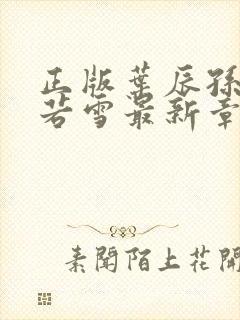 正版葉辰孫
若雪最新章
素聞陌上花開